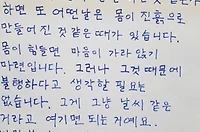 하면 또 어떤날은 몸이 진흙으로
만들어진 것 같은 때가 있습니다.
몸이 힘들면 마음이 가라앉기
마련입니다. 그러나 그것 때문에
불행하다고 생각할 필요는
없습니다. 그게 그냥 날씨 같은
거라고 여기면 되는 거예요.